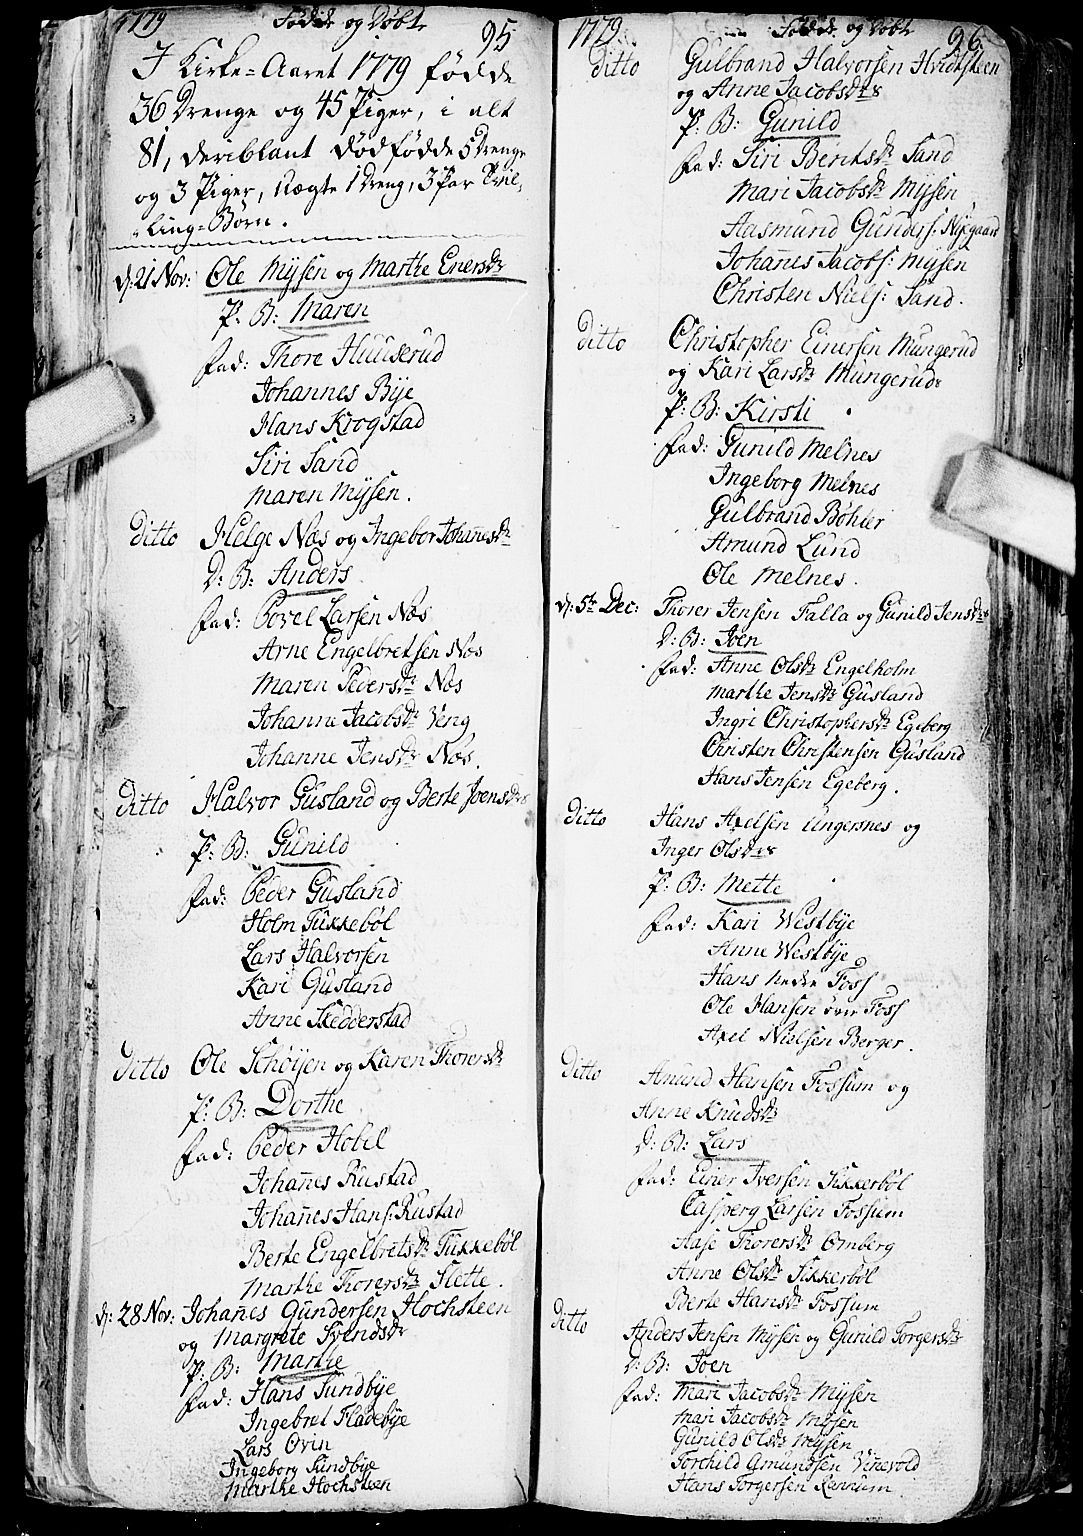 1779 Födde og Döbte 95
I Kirke-Aaret 1779 fødde
36 Drenge og 45 Piger, i alt
81, deriblant dødfødde 5 Drenge
og 3 Piger, uægte 1 Dreng, 3 Par Tvil-
ling-Börn.
d: 21 Nov: Ole Mÿsen og Marthe Enersdr
P: B: Maren
Fad: Thore Huuserud
Johannes Bÿe
Hans Krogstad
Siri Sand
Maren Mÿsen.
Ditto Helge Næs og Ingebor Johan̄esdr
D: B: Anders
Fad: Povel Larsen Næs
Arne Engelbretsen Næs
Maren Pedersdr Næs
Johanne Jacobsdr Veng
Johanne Jensdr Næs.
Ditto Halvor Gusland og Berte Joensdr
P: B: Gunild
Fad: Peder Gusland
Holm Tukkebøl
Lars Halvorsen
Kari Gusland
Anne Skedderstad
Ditto Ole Schöijen og Karen Thorersdr
P: B: Dorthe
Fad: Peder Hobel
Johan̄es Rustad
Johan̄es Hans: Rustad
Berte Engelbretsdr Tukkebøl
Marthe Thorersdr Slette.
d: 28 Nov: Johan̄es Gundersen Hochsteen
og Margrete Svendsdr
P: B: Marthe
Fad: Hans Sundbÿe
Ingebret Fladebÿe
Lars Ovin
Ingeborg Sundbÿe
Marthe Hochsteen
1779 Födde og Döbte 96
Ditto Gulbrand Halvorsen Hvidtsteen
og Anne Jacobsdr
P: B: Gunild
Fad: Siri Bentsdr Sand
Mari Jacobsdr Mÿsen
Aasmund Gunders: Nÿegaard
Johan̄es Jacobs: Mÿsen
Christen Niels: Sand.
Ditto Christopher Einersen Mungerud
og Kari Larsdr Mungerud
P: B: Kirsti
Fad: Gunild Melnes
Ingeborg Melnes
Gulbrand Böhler
Amund Lund
Ole Melnes.
d: 5te Dec: Thorer Jensen Falla og Gunild Jensdr
D: B: Joen
Fad: Anne Olsdr Engelholm
Marthe Jensdr Gusland
Ingri Christophersdr Egeberg
Christen Christensen Gusland
Hans Jensen Egeberg.
Ditto Hans Axelsen Ungersnes og
Inger Olsdr
P: B: Mette
Fad: Kari Westbÿe
Anne Westbÿe
Hans nedre Foss
Ole Hansen över Foss
Axel Nielsen Berger.
Ditto Amund Hansen Fossum og
Anne Knudsdr
D: B: Lars
Fad: Einer Iversen Sikkerböl
Casperg Larsen Fossum
Aase Thorersdr Omberg
Anne Olsdr Sikkerböl
Berte Hansdr Fossum
Ditto Anders Jensen Mÿsen og Gunild Torgersdr
D: B: Joen
Fad: Mari Jacobsdr Mÿsen
Mari Jacobsdr Mÿsen
Gunild Olsdr Mÿsen
Torchild Gmundsen Vinevold
Hans Torgersen Rannum.